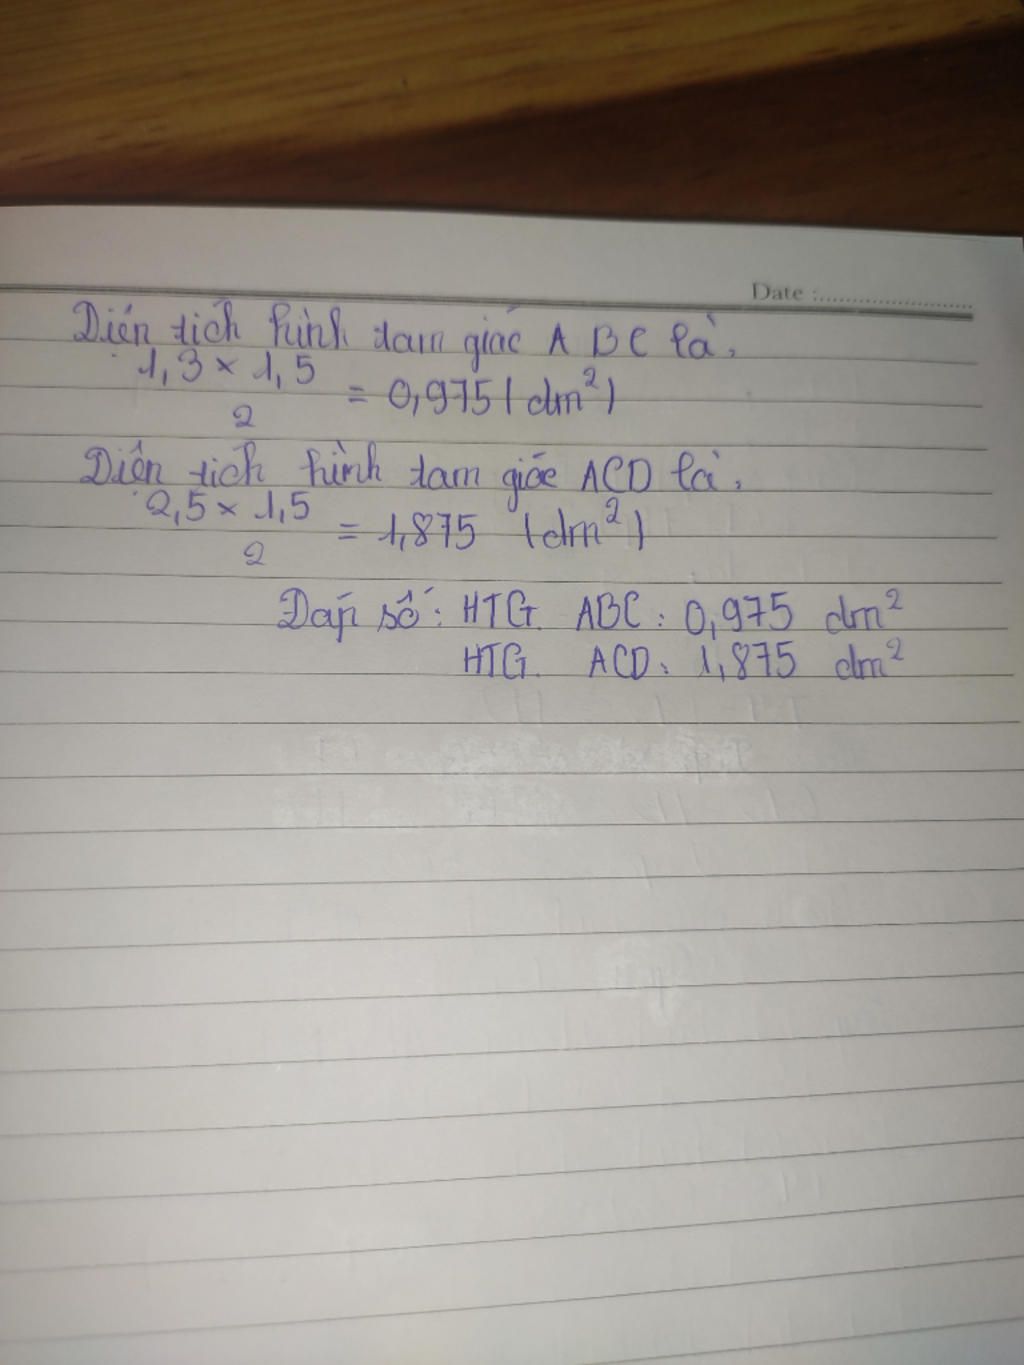 Date :........................
Diện tích hình tam giác ABC là:
1,3 × 1,5
= 0,975 (dm²)
2
Diện tích hình tam giác ACD là:
2,5 × 1,5
= 1,875 (dm²)
2
Đáp số: HTG. ABC: 0,975 dm²
HTG. ACD: 1,875 dm²